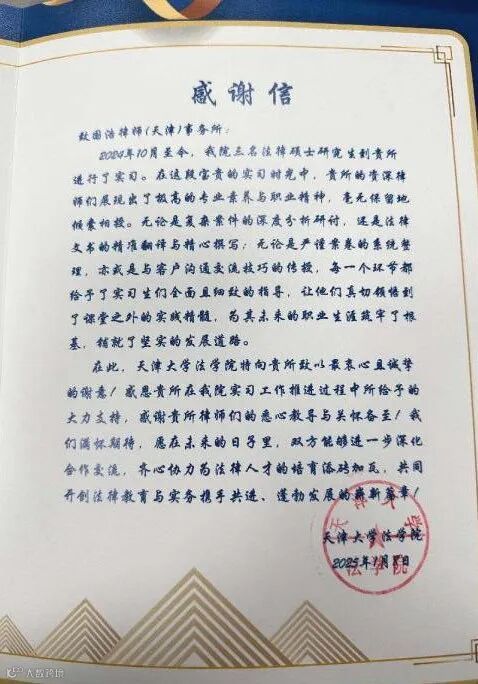 感谢信
致国浩律师(天津)事务所:
2024年10月至今,我院三名法律硕士研究生到贵所
进行了实习。在这段宝贵的实习时光中,贵所的资深律
师们展现出了极高的专业素养与职业精神,毫无保留地
倾囊相授。无论是复杂案件的深度分析研讨,还是法律
文书的精准翻译与精心撰写;无论是严谨案卷的系统整
理,亦或是与客户沟通交流技巧的传授,每一个环节都
给予了实习生们全面且细致的指导,让他们真切领悟到
了课堂之外的实践精髓,为其未来的职业生涯筑牢了根
基,铺就了坚实的发展道路。
在此,天津大学法学院特向贵所致以最衷心且诚挚
的谢意!感恩贵所在我院实习工作推进过程中所给予的
大力支持,感谢贵所律师们的悉心教导与关怀备至!我
们满怀期待,愿在未来的日子里,双方能够进一步深化
合作交流,齐心协力为法律人才的培育添砖加瓦,共同
开创法律教育与实务携手共进、蓬勃发展的崭新篇章!
天津大学
天津大学法学院
2025年1月8日
法学院
大数跨境